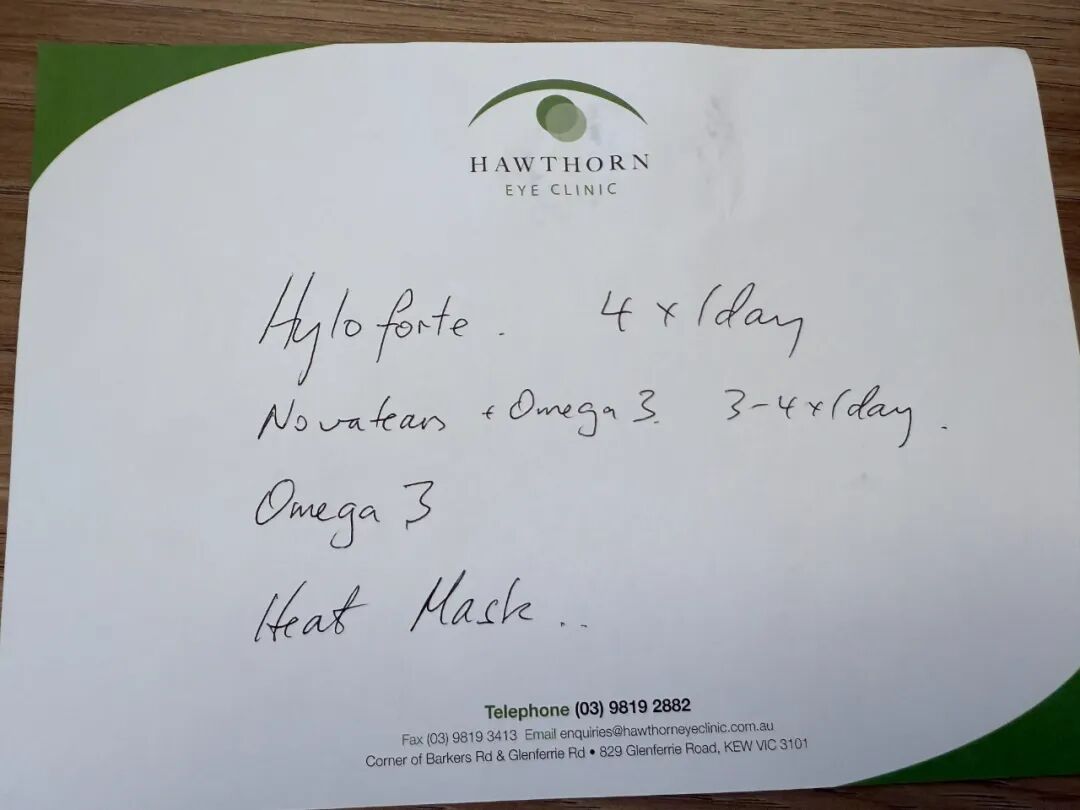 HAWTHORN
EYE CLINIC
Hylo forte. 4 x/day
Novatears + Omega 3. 3-4 x/day.
Omega 3
Heat Mask ..
Telephone (03) 9819 2882
Fax (03) 9819 3413 Email enquiries@hawthorneyeclinic.com.au
Corner of Barkers Rd & Glenferrie Rd • 829 Glenferrie Road, KEW VIC 3101